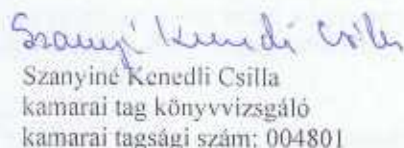 Szanyiné Kenedli Csilla
Szanyiné Kenedli Csilla
kamarai tag könyvvizsgáló
kamarai tagsági szám: 004801